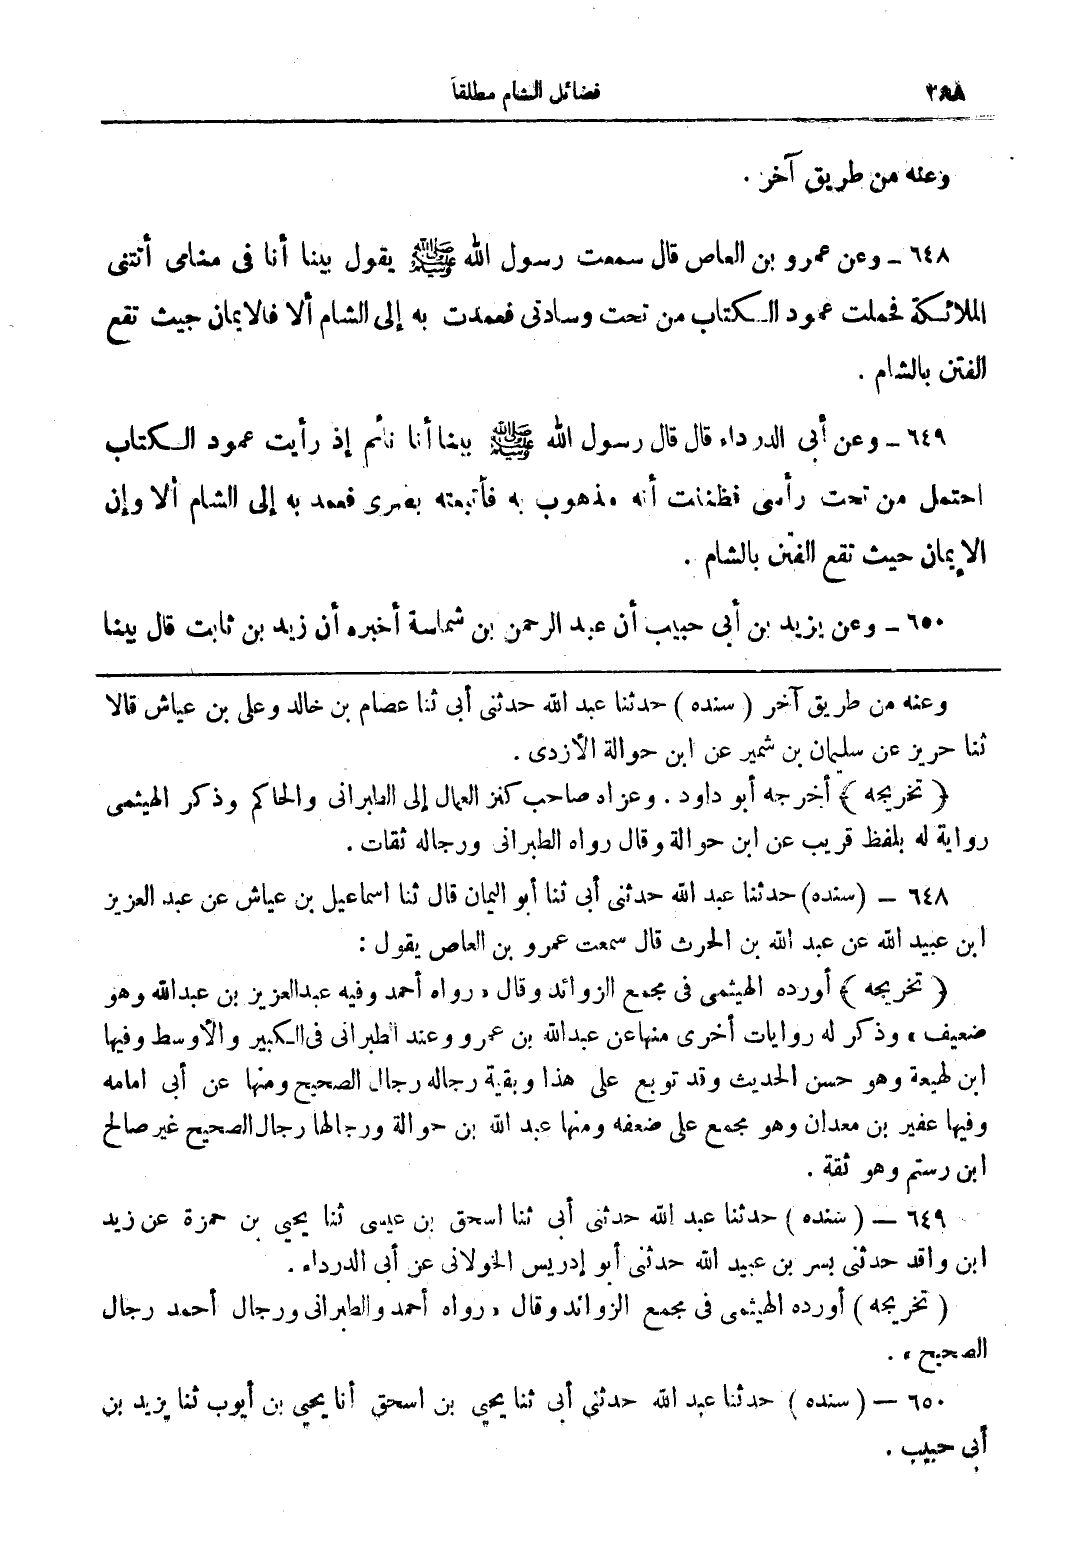 ٣٨٨ فضائل الشام مطلقاً
وعنه من طريق آخر .
٦٤٨ ـ وعن عمرو بن العاص قال سمعت رسول الله ﷺ يقول بينا أنا فى منامى أتتنى
الملائكة فحملت عمود الكتاب من تحت وسادتى فعمدت به إلى الشام ألا فالايمان حيث تقع
الفتن بالشام .
٦٤٩ ـ وعن أبى الدرداء قال قال رسول الله ﷺ بينا أنا نائم إذ رأيت عمود الكتاب
احتمل من تحت رأسى فظننت أنه مذهوب به فأتبعته بصرى فعمد به إلى الشام ألا وإن
الإيمان حيث تقع الفتن بالشام .
٦٥٠ ـ وعن يزيد بن أبى حبيب أن عبد الرحمن بن شماسة أخبره أن زيد بن ثابت قال بينا
وعنه من طريق آخر ( سنده ) حدثنا عبد الله حدثنى أبى ثنا عصام بن خالد وعلى بن عياش قالا
ثنا حريز عن سليمان بن شمير عن ابن حوالة الأزدى .
﴿ تخريجه ﴾ أخرجه أبو داود . وعزاه صاحب كنز العمال إلى الطبرانى والحاكم وذكر الهيثمى
رواية له بلفظ قريب عن ابن حوالة وقال رواه الطبرانى ورجاله ثقات .
٦٤٨ ـ (سنده) حدثنا عبد الله حدثنى أبى ثنا أبو اليمان قال ثنا اسماعيل بن عياش عن عبد العزيز
ابن عبيد الله عن عبد الله بن الحرث قال سمعت عمرو بن العاص يقول :
﴿ تخريجه ﴾ أورده الهيثمى فى مجمع الزوائد وقال « رواه أحمد وفيه عبدالعزيز بن عبدالله وهو
ضعيف » وذكر له روايات أخرى منها عن عبدالله بن عمرو وعند الطبرانى فى الكبير والأوسط وفيها
ابن لهيعة وهو حسن الحديث وقد توبع على هذا وبقية رجاله رجال الصحيح ومنها عن أبى امامه
وفيها عفير بن معدان وهو مجمع على ضعفه ومنها عبد الله بن حوالة ورجالها رجال الصحيح غير صالح
ابن رستم وهو ثقة .
٦٤٩ ـ ( سنده ) حدثنا عبد الله حدثنى أبى ثنا اسحق بن عيسى ثنا يحيى بن حمزة عن زيد
ابن واقد حدثنى بسر بن عبيد الله حدثنى أبو إدريس الخولانى عن أبى الدرداء .
( تخريجه ) أورده الهيثمى فى مجمع الزوائد وقال « رواه أحمد والطبرانى ورجال أحمد رجال
الصحيح » .
٦٥٠ ـ ( سنده ) حدثنا عبد الله حدثنى أبى ثنا يحيى بن اسحق أنا يحيى بن أيوب ثنا يزيد بن
أبى حبيب .